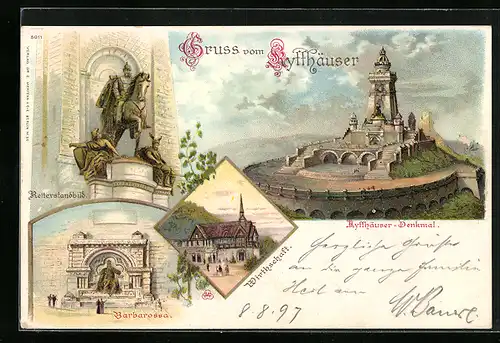 Gruss vom
Kyffhäuser
Reiterstandbild.
Kyffhäuser-Denkmal.
Wirthschaft.
Barbarossa.
Herzliche Grüsse
an die ganze Familie
8.8.97